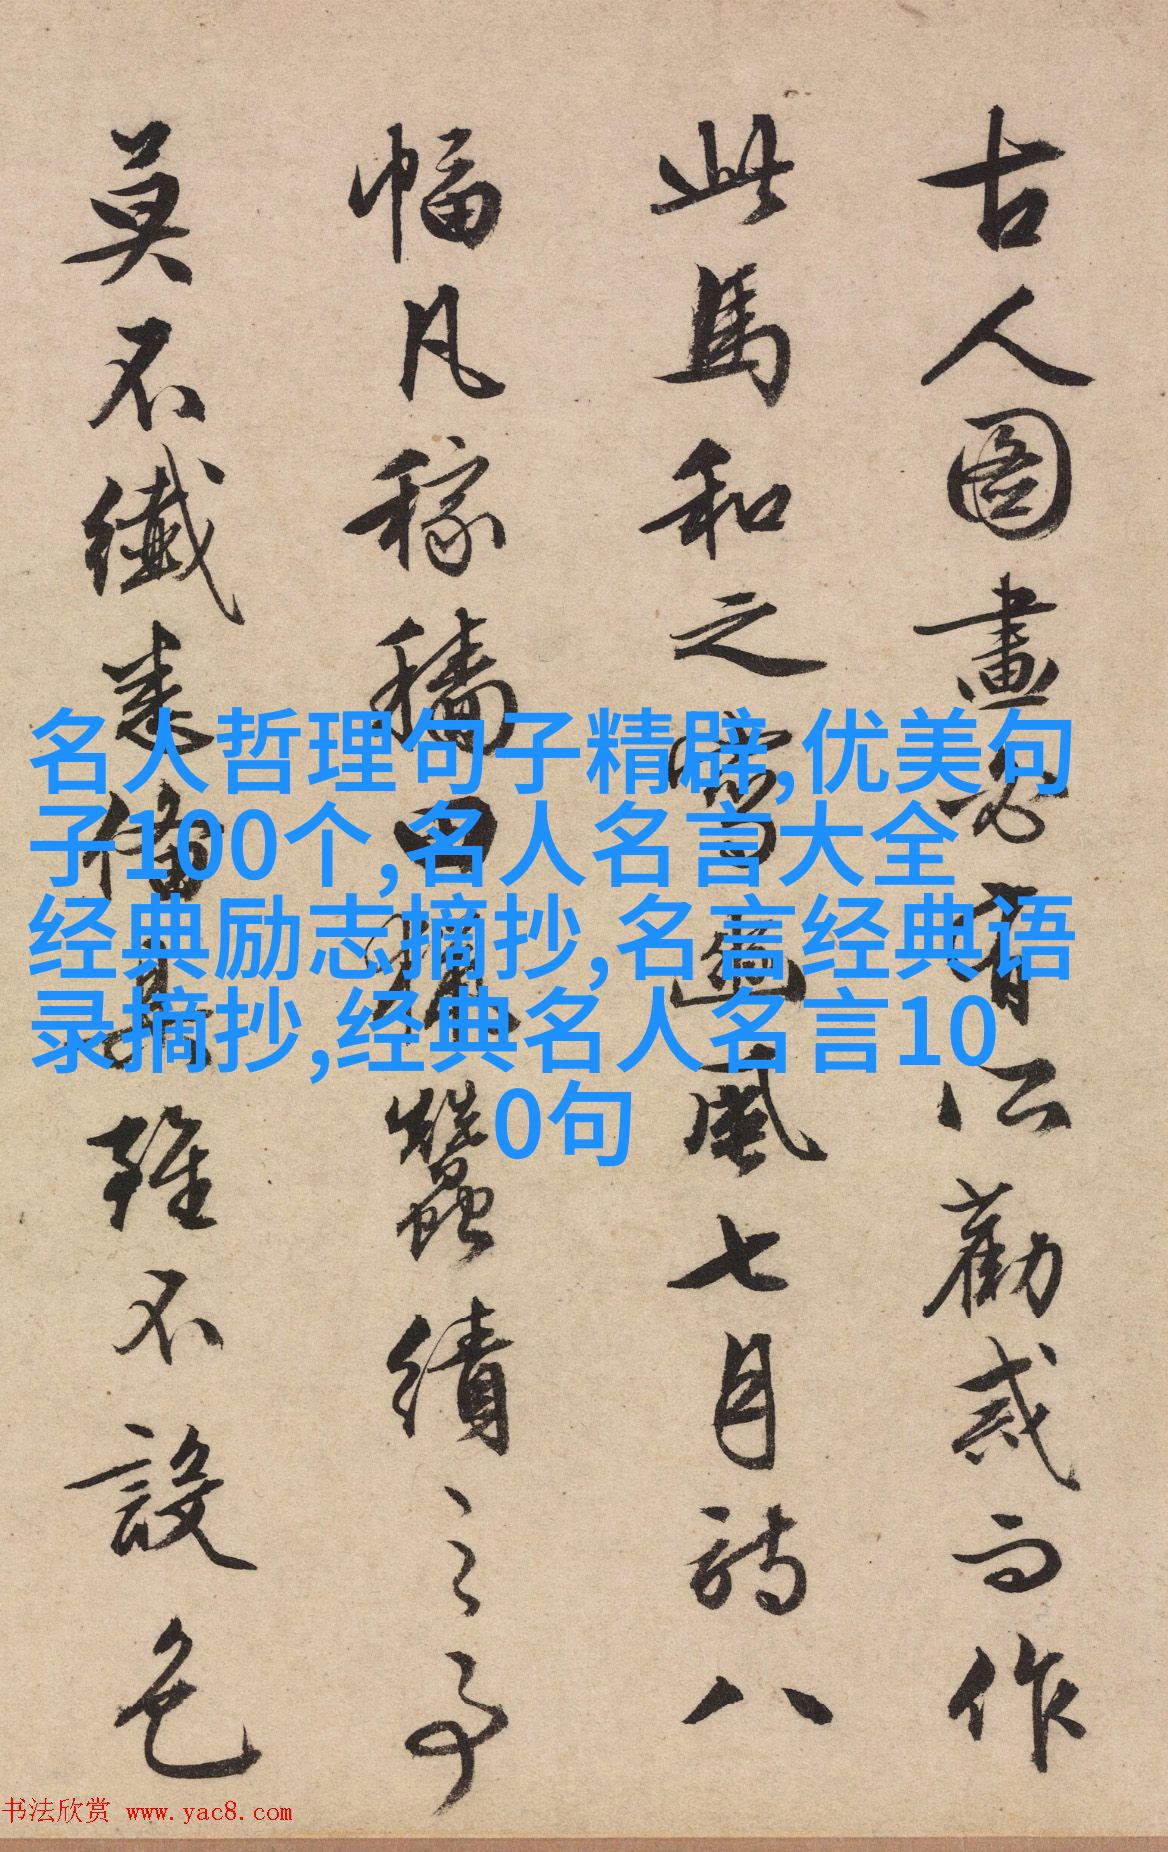 古人图畫必有所勸戒而作
此馬和之寫豳風七月詩八
幅凡稼穑田獵蠶績之事
莫不纖悉備具雖不設色
名人哲理句子精辟,优美句
子100个,名人名言大全
经典励志摘抄,名言经典语
录摘抄,经典名人名言10
0句
书法欣赏 www.yac8.com